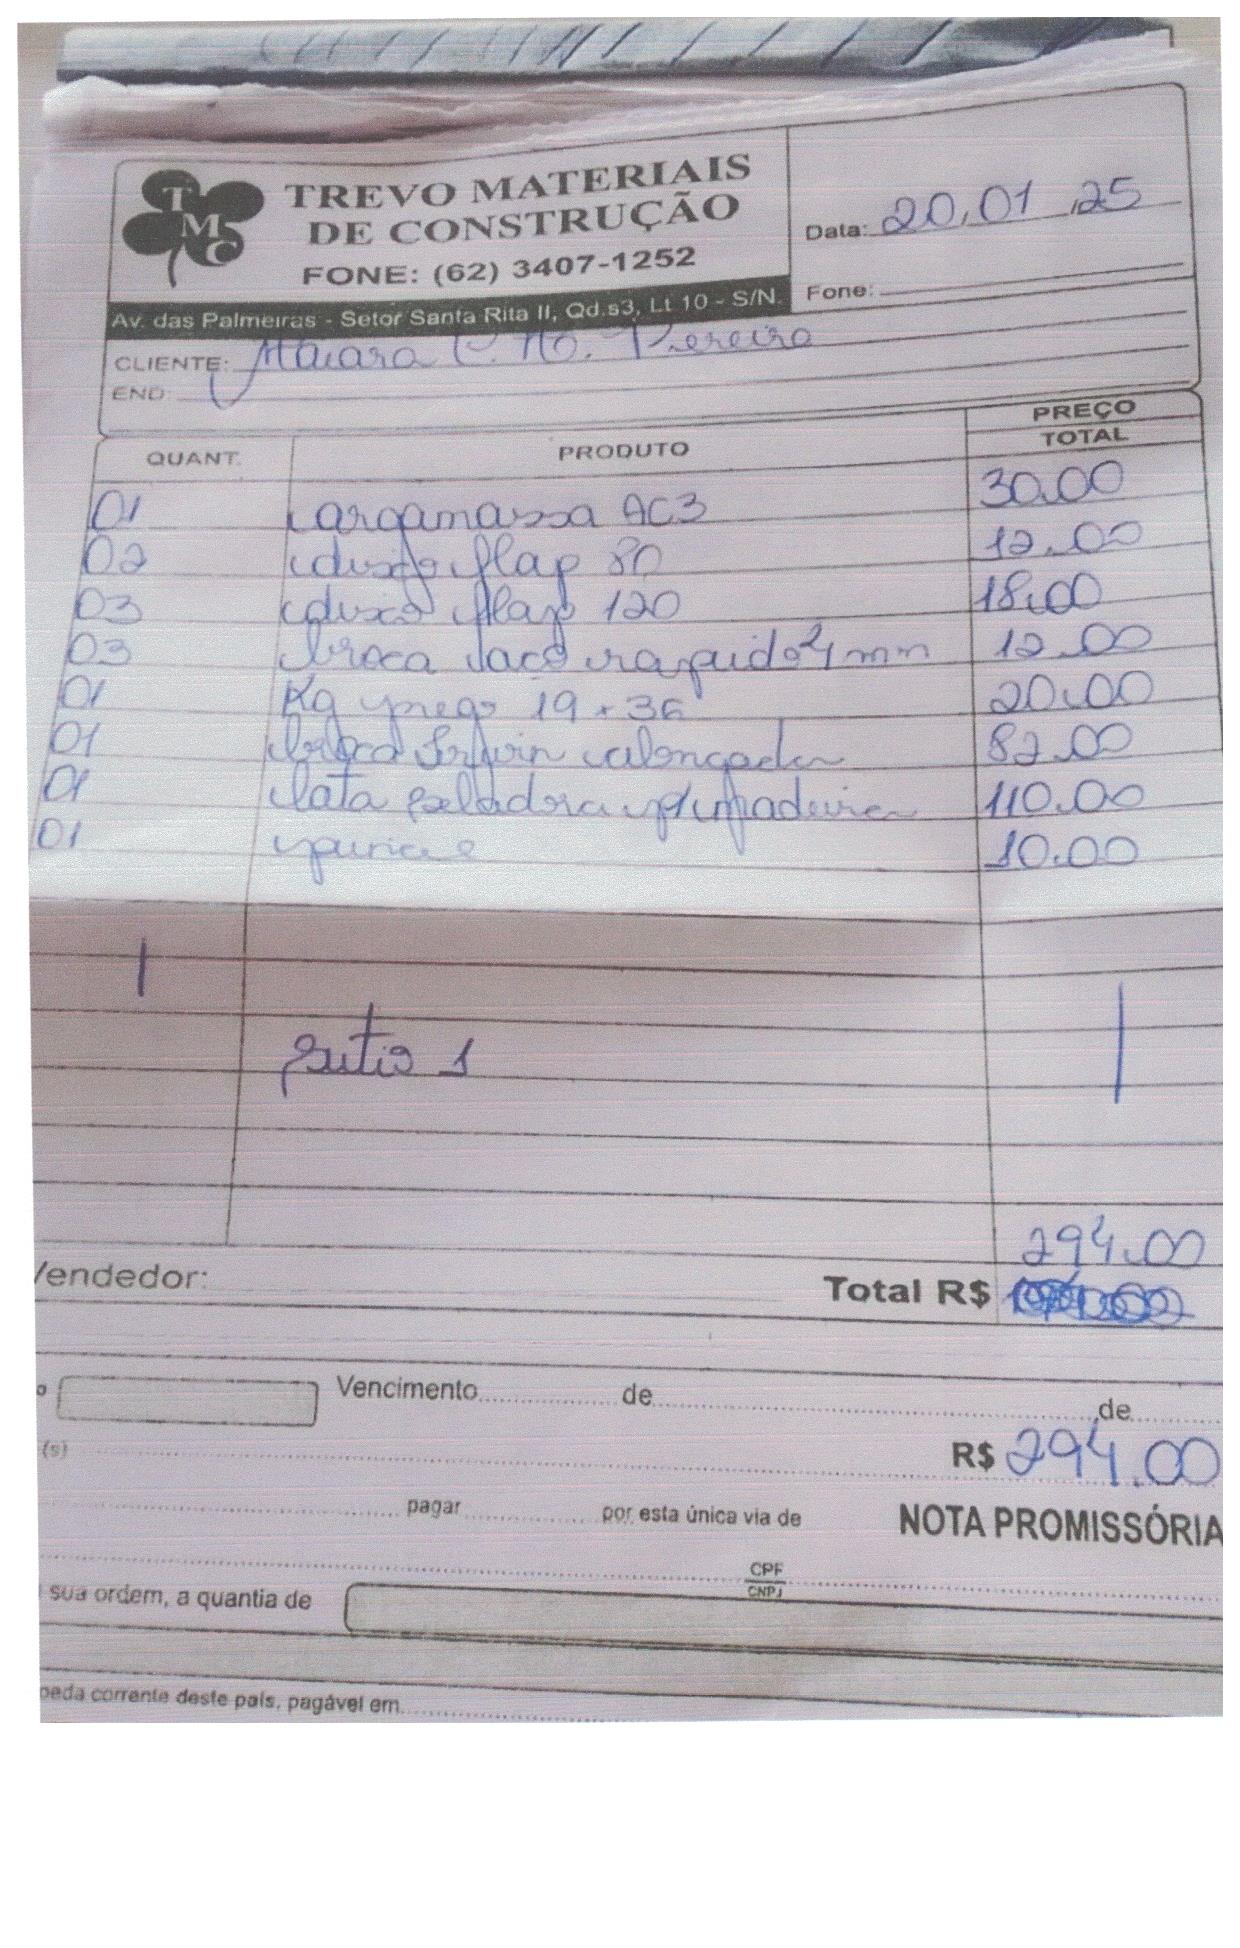 TMC
TREVO MATERIAIS
DE CONSTRUÇÃO
FONE: (62) 3407-1252
Av. das Palmeiras - Setor Santa Rita II, Qd.s3, Lt 10 - S/N.
Data: 20,01,25
Fone:
CLIENTE: Maiara C. M. Pereira
END:
QUANT. PRODUTO PREÇO TOTAL
01 argamassa AC3 30.00
02 disco flap 80 12.00
03 disco flap 120 18.00
03 broca aco rapido 4 mm 12.00
01 Kg prego 19 x 36 20.00
01 broca Irwin alongada 82.00
01 lata seladora p/ madeira 110.00
01 10.00
sitio 1
294.00
Vendedor:
Total R$
o Vencimento de de
(s) R$ 294.00
pagar por esta única via de NOTA PROMISSÓRIA
CPF
CNPJ
sua ordem, a quantia de
oeda corrente deste país, pagável em